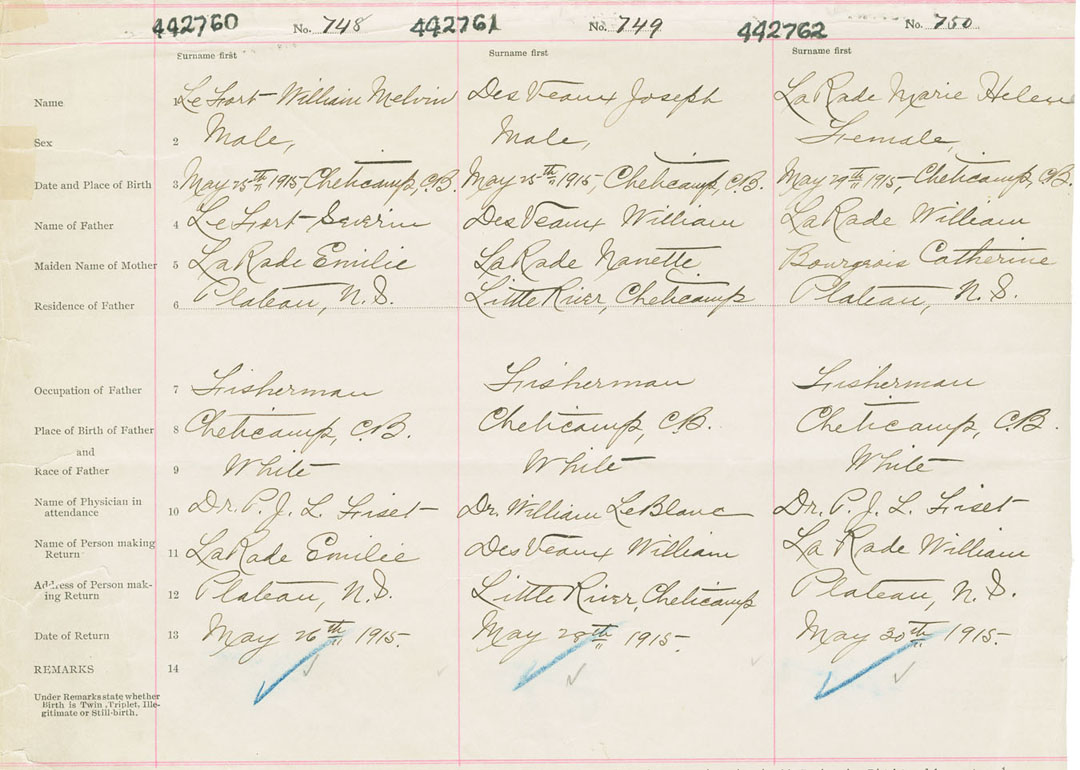 442760 No. 748 442761 No. 749 442762 No. 750
Surname first Surname first Surname first
Name 1 Le Fort William Melvin Des Veaux Joseph LaRade Marie Helen
Sex 2 Male, Male, Female,
Date and Place of Birth 3 May 25th 1915 Cheticamp, C.B. May 25th 1915, Cheticamp, C.B. May 29th 1915, Cheticamp, C.B.
Name of Father 4 Le Fort Severin Des Veaux William LaRade William
Maiden Name of Mother 5 LaRade Emilie LaRade Nanette Bourgeois Catherine
Residence of Father 6 Plateau, N.S. Little River, Cheticamp Plateau, N.S.
Occupation of Father 7 Fisherman Fisherman Fisherman
Place of Birth of Father 8 Cheticamp, C.B. Cheticamp, C.B. Cheticamp, C.B.
and
Race of Father 9 White White White
Name of Physician in
attendance 10 Dr. P. J. L. Fiset Dr. William LeBlanc Dr. P. J. L. Fiset
Name of Person making
Return 11 LaRade Emilie Des Veaux William La Rade William
Address of Person mak-
ing Return 12 Plateau, N.S. Little River, Cheticamp Plateau, N.S.
Date of Return 13 May 26th 1915. May 28th 1915. May 30th 1915.
REMARKS 14
Under Remarks state whether
Birth is Twin, Triplet, Ille-
gitimate or Still-birth.